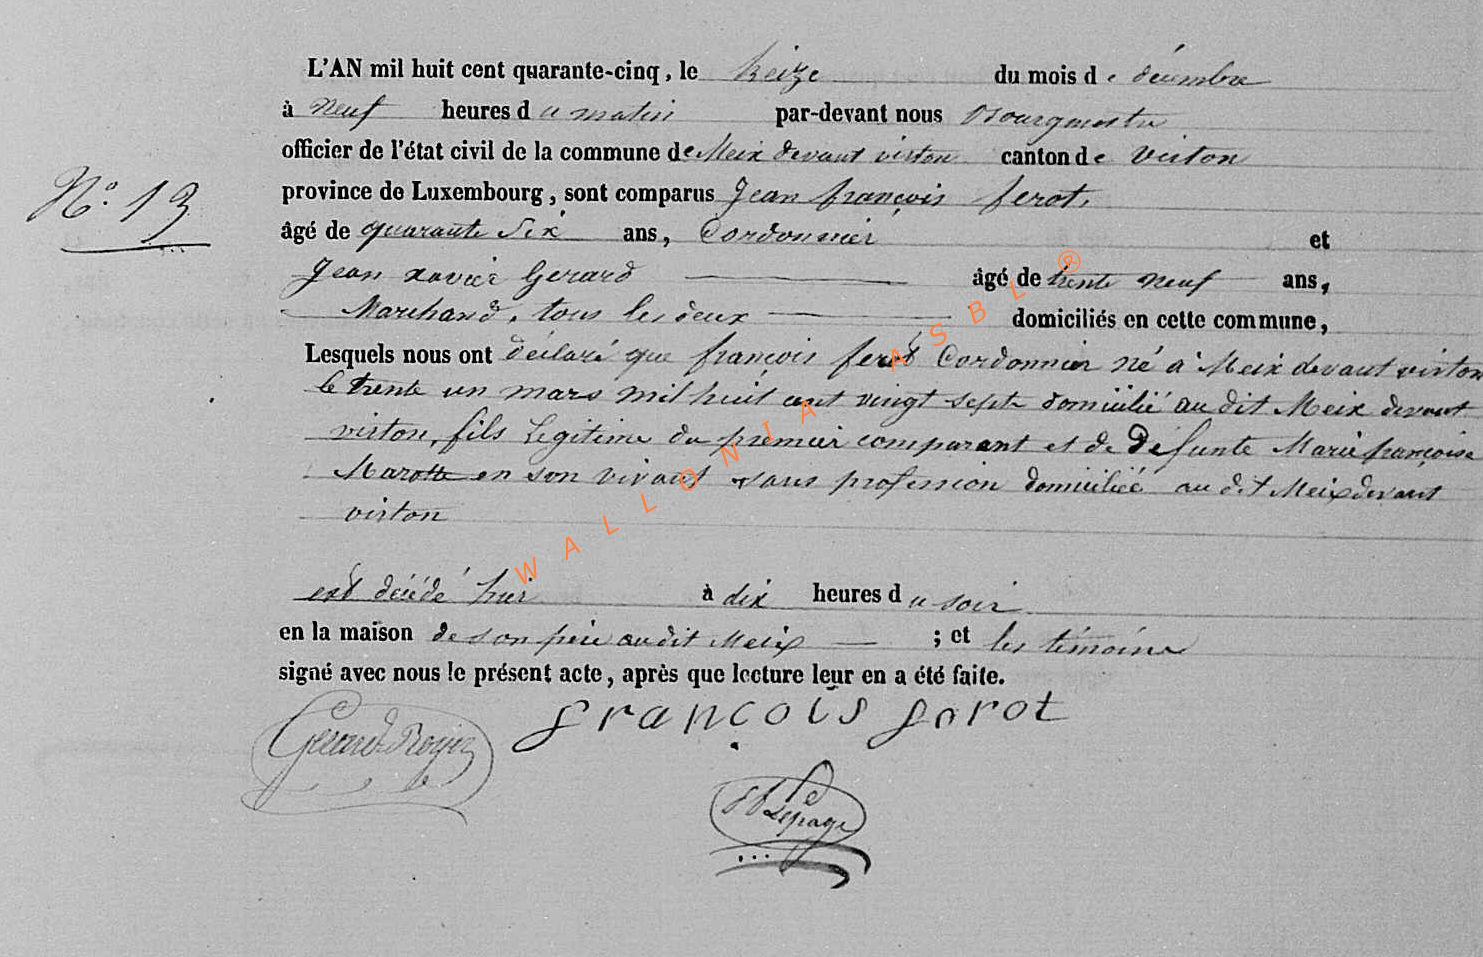 L'AN mil huit cent quarante-cinq, le treize du mois de décembre
à neuf heures du matin par-devant nous Bourgmestre
officier de l'état civil de la commune de Meix devant virton canton de virton
province de Luxembourg, sont comparus Jean françois ferot,
N.° 13
âgé de quarante six ans, Cordonnier et
Jean xavier Gerard âgé de trente neuf ans,
Marchand, tous les deux domiciliés en cette commune,
Lesquels nous ont déclaré que françois ferot Cordonnier né à Meix devant virton
le trente un mars mil huit cent vingt sept domicilié au dit Meix devant
virton, fils legitime du premier comparant et de defunte Marie françoise
Marotte en son vivant sans profession domiciliée au dit Meix devant
virton
est décédé hier à dix heures du soir
en la maison de son père au dit Meix ; et les témoins
signé avec nous le présent acte, après que lecture leur en a été faite.
françois ferot
Gerard
Lepage
WALLONIA ASBL ®